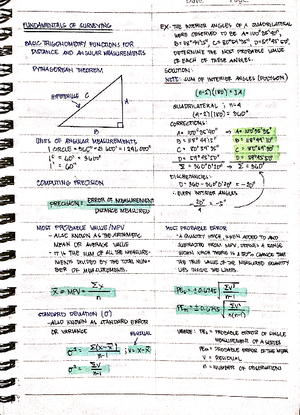 Date: Page:
FUNDAMENTALS OF SURVEYING
BASIC TRIGONOMETRY FUNCTIONS FOR
DISTANCE AND ANGULAR MEASUREMENTS
PYTHAGOREAN THEOREM
HYPOTENUSE C
A
B
UNITS OF ANGULAR MEASUREMENTS
1° = 60' = 3600"
1' = 60"
COMPUTING PRECISION
PRECISION = ERROR OF MEASUREMENT
DISTANCE MEASURED
MOST PROBABLE VALUE/MPV
- ALSO KNOWN AS THE ARITHMETIC
MEAN OR AVERAGE VALUE
- IT IS THE SUM OF ALL THE MEASURE-
MENTS DIVIDED BY THE TOTAL NUM-
BER OF MEASUREMENTS.
x̄ = MPV = Σx
n
STANDARD DEVIATION (σ)
- ALSO KNOWN AS STANDARD ERROR
OR VARIANCE
RESIDUAL
σ² = Σ(x-x̄)² ; V = x-x̄
n-1
σ² = Σv²
n-1
EX: THE INTERIOR ANGLES OF A QUADRILATERAL
WERE OBSERVED TO BE
DETERMINE THE MOST PROBABLE VALUE
OF EACH OF THESE ANGLES.
SOLUTION:
NOTE: SUM OF INTERIOR ANGLES (POLYGON)
(n-2)(180) = ΣA
QUADRILATERAL ; n=4
(4-2)(180) = 360°
CORRECTIONS:
DISCREPANCIES:
- EVERY INTERIOR ANGLES
MOST PROBABLE ERROR
- A QUANTITY WHICH, WHEN ADDED TO AND
SUBTRACTED FROM MPV, DEFINES A RANGE
WITHIN WHICH THERE IS A 50% CHANCE THAT
THE TRUE VALUE OF THE MEASURED QUANTITY
LIES INSIDE THE LIMITS.
PEs = ±0.6745 √ Σv²
n-1
PEm = ±0.6745 √ Σv²
n(n-1)
WHERE: PEs = PROBABLE ERROR OF SINGLE
MEASUREMENT OF A SERIES
PEm = PROBABLE ERROR OF THE MEAN
V = RESIDUAL
n = NUMBER OF OBSERVATIONS